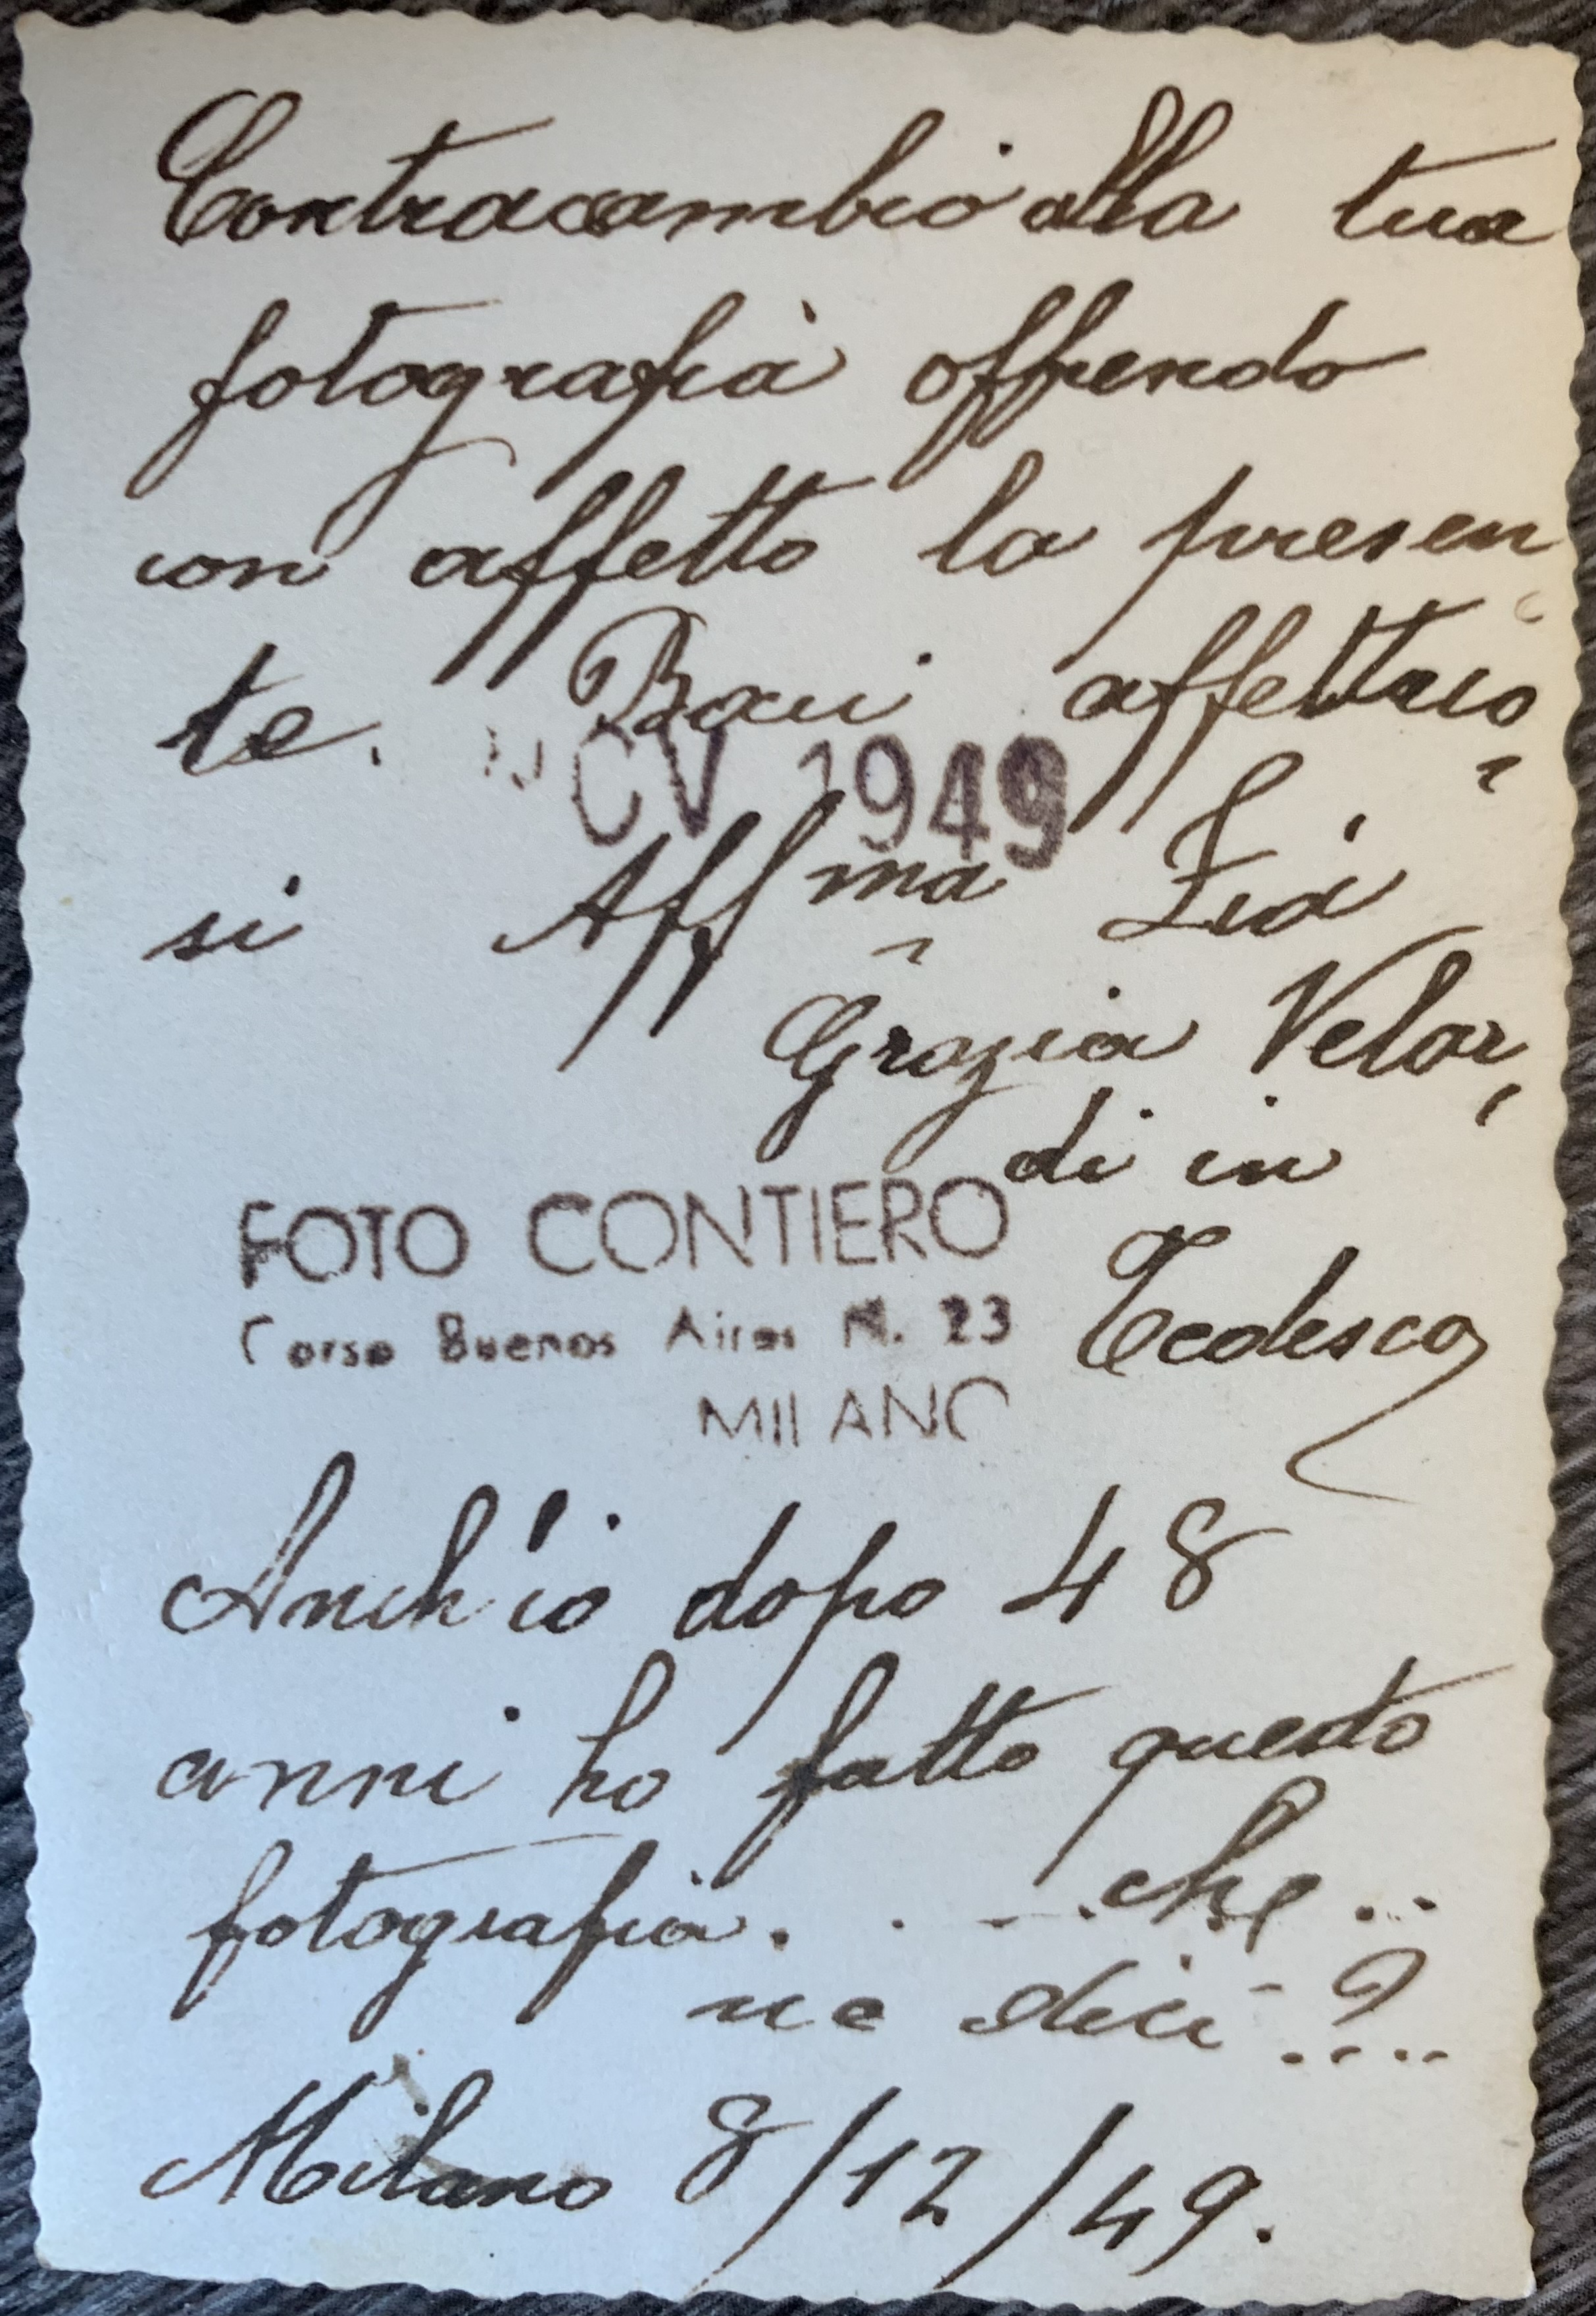 Contracambio alla tua
fotografia offrendo
con affetto la presen
te. Baci affettuo
CV 1949
si Aff ma Zia
Grazia Velar
di in
FOTO CONTIERO
Corso Buenos Aires N. 23
Tedesco
MILANO
Anch'io dopo 48
anni ho fatto questo
fotografia. . ... che ..
ne dici?...
Milano 8/12/49.